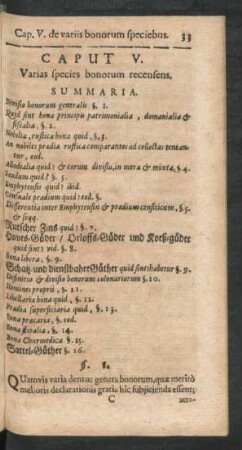 Cap. V. de variis bonorum speciebus. 33
CAPUT V.
Varias species bonorum recensens.
SUMMARIA.
Divisio bonorum generalis §. 1.
Quid sint bona principis patrimonialia, domanialia &
fiscalia, §. 2.
Nobilia, rustica bona quid, §. 3.
An nobiles pradia rustica comparantes ad collectas tenean-
tur, eod.
Allodialia quid? & eorum divisio, in nuta & minta, §. 4.
Feudum quid? §. 5.
Emphyteusis quid? ibid.
Censuale pradium quid? eod. §.
Differentia inter Emphyteusin & pradium censiticum, §. 6
& seqq.
Rutscher Zins quid? §. 7.
Hoves-Güder / Orloffs-Güder und Korß-güder
quid sint? vid. §. 8.
Bona libera, §. 9.
Schatz- und dienstbahre Güther quid sint habetur §. 9.
Definitio & divisio bonorum colonariorum §. 10.
Homines proprii, §. 11.
Libellaria bona quid, §. 12.
Pradia superficiaria quid, §. 13.
Bona pracaria, §. eod.
Bona stipalia, §. 14.
Bona Churmedica §. 25.
Sattel-Güther §. 16.
§. 1.
Quamvis varia dentur genera bonorum, quæ meritò
melioris declarationis gratia hîc subjicienda essent;
C